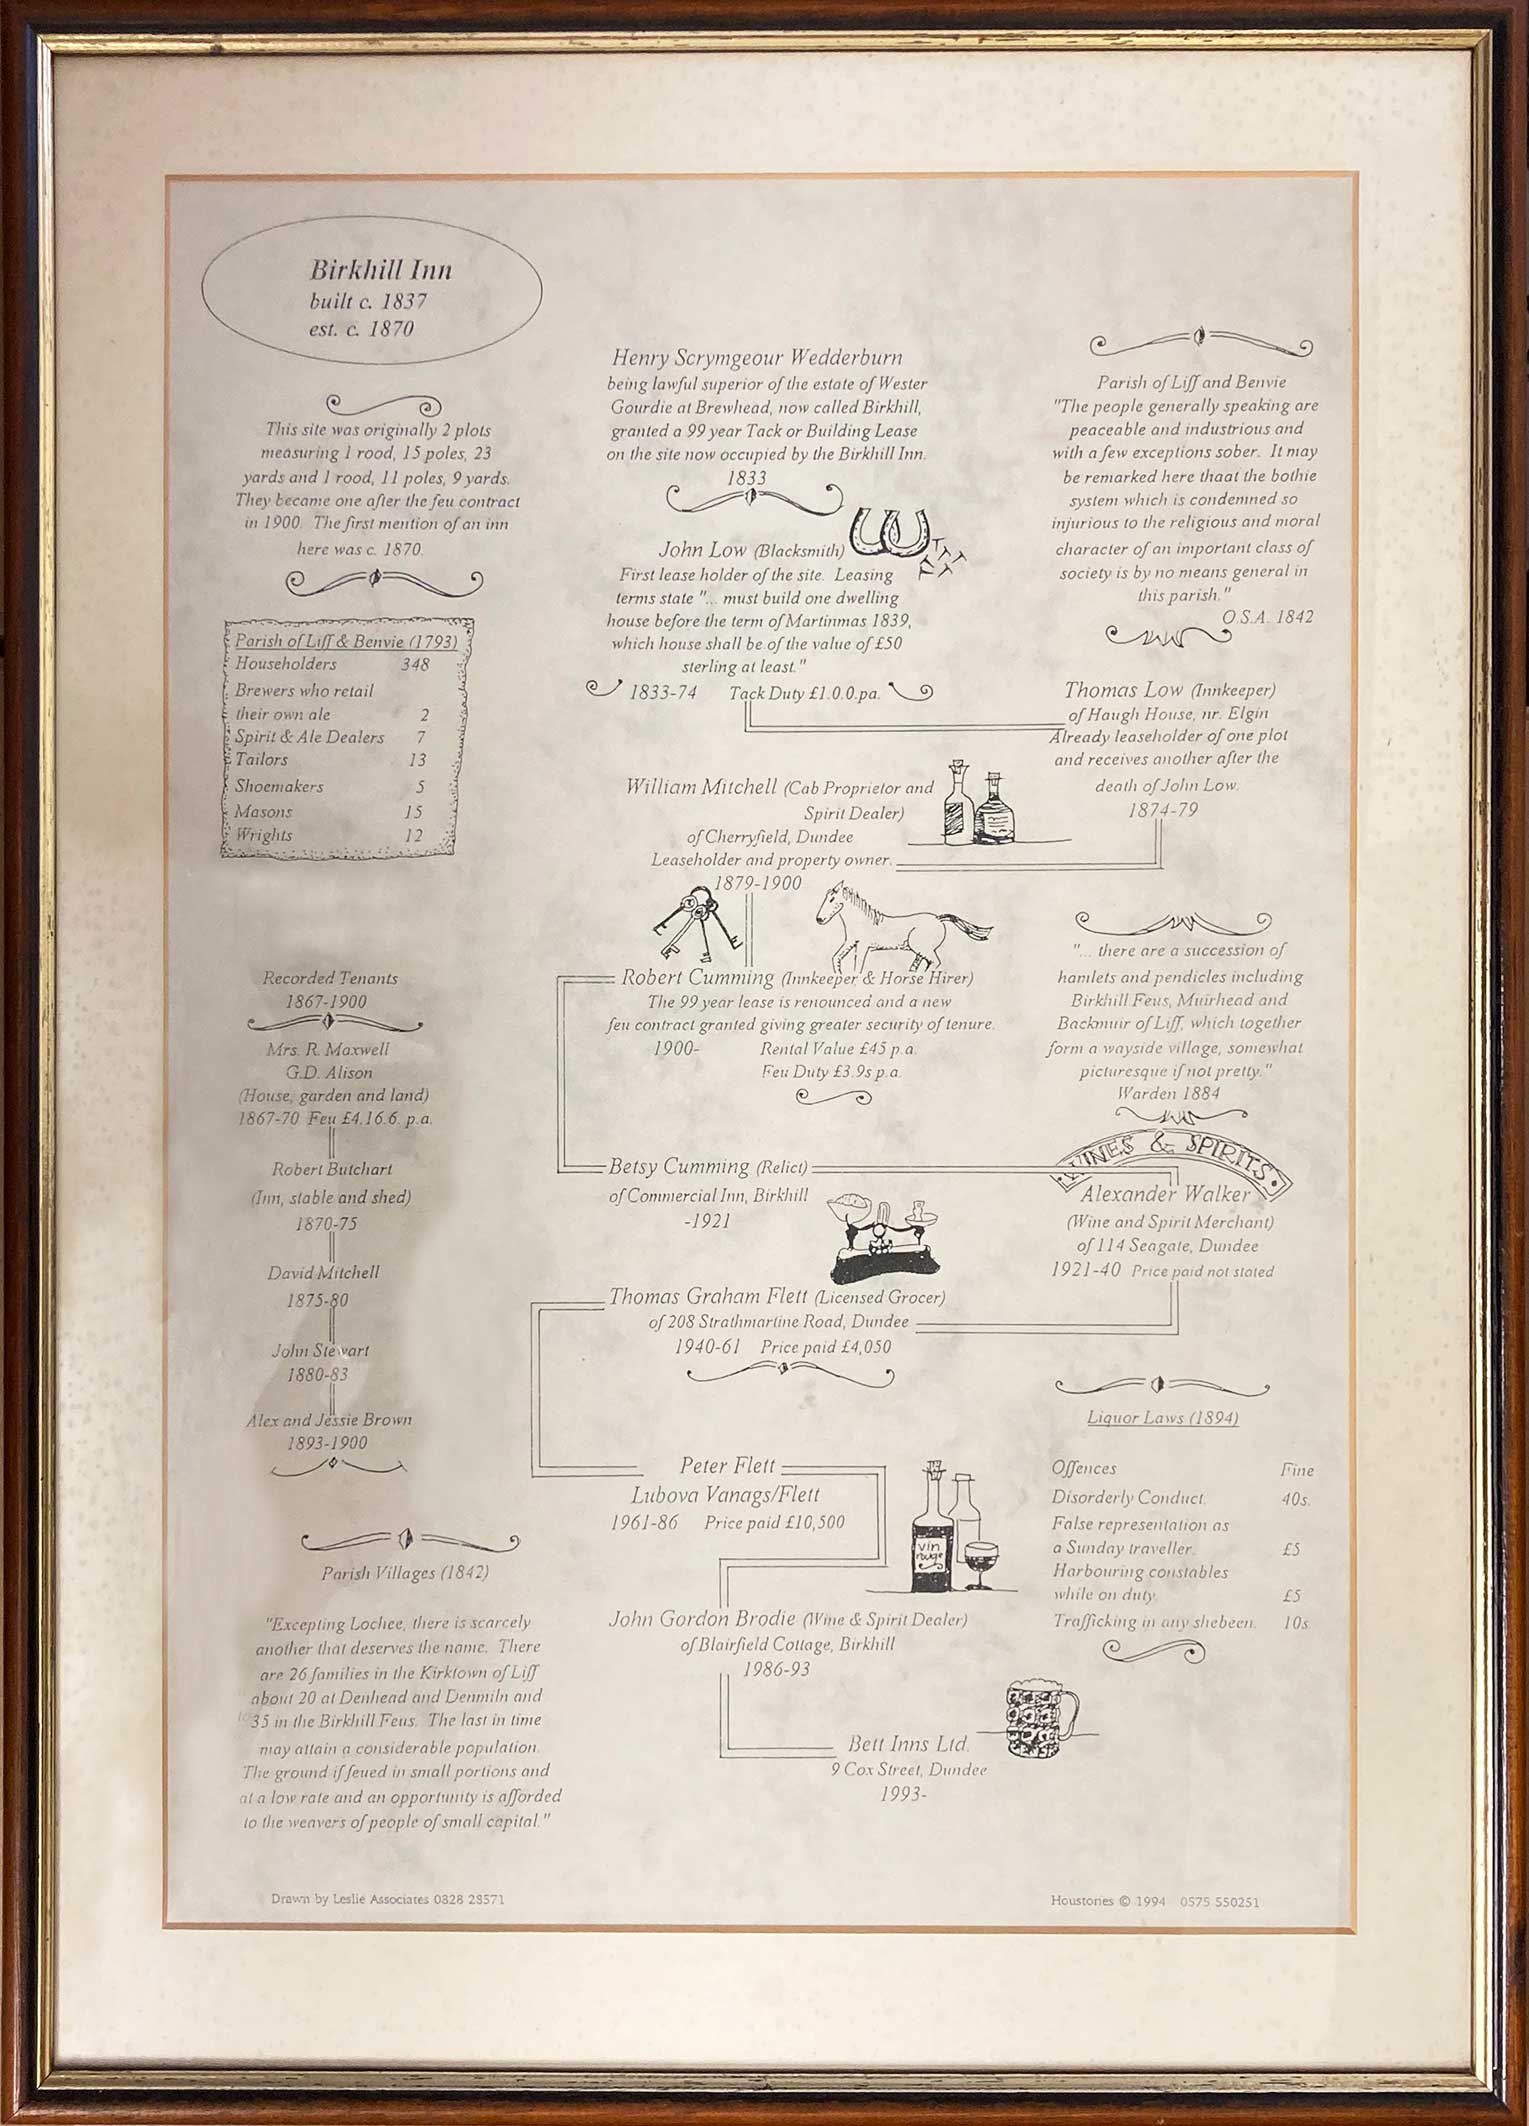 Birkhill Inn
built c. 1837
est. c. 1870
This site was originally 2 plots
measuring 1 rood, 15 poles, 23
yards and 1 rood, 11 poles, 9 yards.
They became one after the feu contract
in 1900. The first mention of an inn
here was c. 1870.
Parish of Liff & Benvie (1793)
Householders 348
Brewers who retail
their own ale 2
Spirit & Ale Dealers 7
Tailors 13
Shoemakers 5
Masons 15
Wrights 12
Recorded Tenants
1867-1900
Mrs. R. Maxwell
G.D. Alison
(House, garden and land)
1867-70 Feu £4.16.6. p.a.
Robert Butchart
(Inn, stable and shed)
1870-75
David Mitchell
1875-80
John Stewart
1880-83
Alex and Jessie Brown
1893-1900
Parish Villages (1842)
"Excepting Lochee, there is scarcely
another that deserves the name. There
are 26 families in the Kirktown of Liff
about 20 at Denhead and Denmiln and
35 in the Birkhill Feus. The last in time
may attain a considerable population.
The ground if feued in small portions and
at a low rate and an opportunity is afforded
to the weavers of people of small capital."
Drawn by Leslie Associates 0828 28571
Henry Scrymgeour Wedderburn
being lawful superior of the estate of Wester
Gourdie at Brewhead, now called Birkhill,
granted a 99 year Tack or Building Lease
on the site now occupied by the Birkhill Inn.
1833
John Low (Blacksmith)
First lease holder of the site. Leasing
terms state "... must build one dwelling
house before the term of Martinmas 1839,
which house shall be of the value of £50
sterling at least."
1833-74 Tack Duty £1.0.0.pa.
William Mitchell (Cab Proprietor and
Spirit Dealer)
of Cherryfield, Dundee
Leaseholder and property owner.
1879-1900
Robert Cumming (Innkeeper & Horse Hirer)
The 99 year lease is renounced and a new
feu contract granted giving greater security of tenure.
1900- Rental Value £45 p.a.
Feu Duty £3.9s p.a.
Betsy Cumming (Relict)
of Commercial Inn, Birkhill
-1921
Thomas Graham Flett (Licensed Grocer)
of 208 Strathmartine Road, Dundee
1940-61 Price paid £4,050
Peter Flett
Lubova Vanags/Flett
1961-86 Price paid £10,500
vin
rouge
John Gordon Brodie (Wine & Spirit Dealer)
of Blairfield Cottage, Birkhill
1986-93
Bett Inns Ltd.
9 Cox Street, Dundee
1993-
Parish of Liff and Benvie
"The people generally speaking are
peaceable and industrious and
with a few exceptions sober. It may
be remarked here thaat the bothie
system which is condemned so
injurious to the religious and moral
character of an important class of
society is by no means general in
this parish."
O.S.A. 1842
Thomas Low (Innkeeper)
of Haugh House, nr. Elgin
Already leaseholder of one plot
and receives another after the
death of John Low.
1874-79
"... there are a succession of
hamlets and pendicles including
Birkhill Feus, Muirhead and
Backmuir of Liff, which together
form a wayside village, somewhat
picturesque if not pretty."
Warden 1884
WINES & SPIRITS
Alexander Walker
(Wine and Spirit Merchant)
of 114 Seagate, Dundee
1921-40 Price paid not stated
Liquor Laws (1894)
Offences Fine
Disorderly Conduct. 40s.
False representation as
a Sunday traveller. £5
Harbouring constables
while on duty. £5
Trafficking in any shebeen. 10s
Houstories © 1994 0575 550251